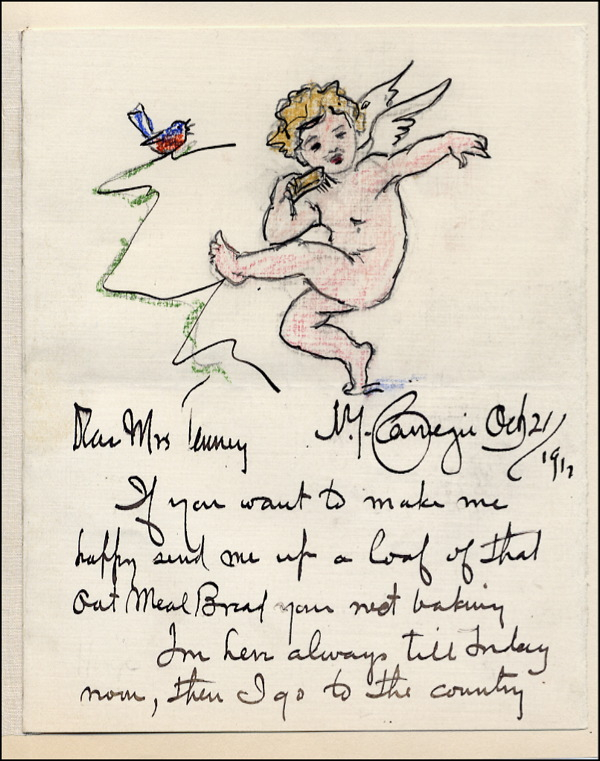 Dear Mrs Tenney N.Y. Carnegie Oct 21/
191
If you want to make me
happy send me up a loaf of that
Oat Meal Bread your baking
Im here always till Friday
noon, then I go to the country